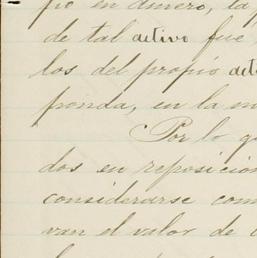 pio en dinero, la
de tal activo fué
los del propio
ponda, en la
Por lo
dos en reposicion
considerarse com
van el valor de